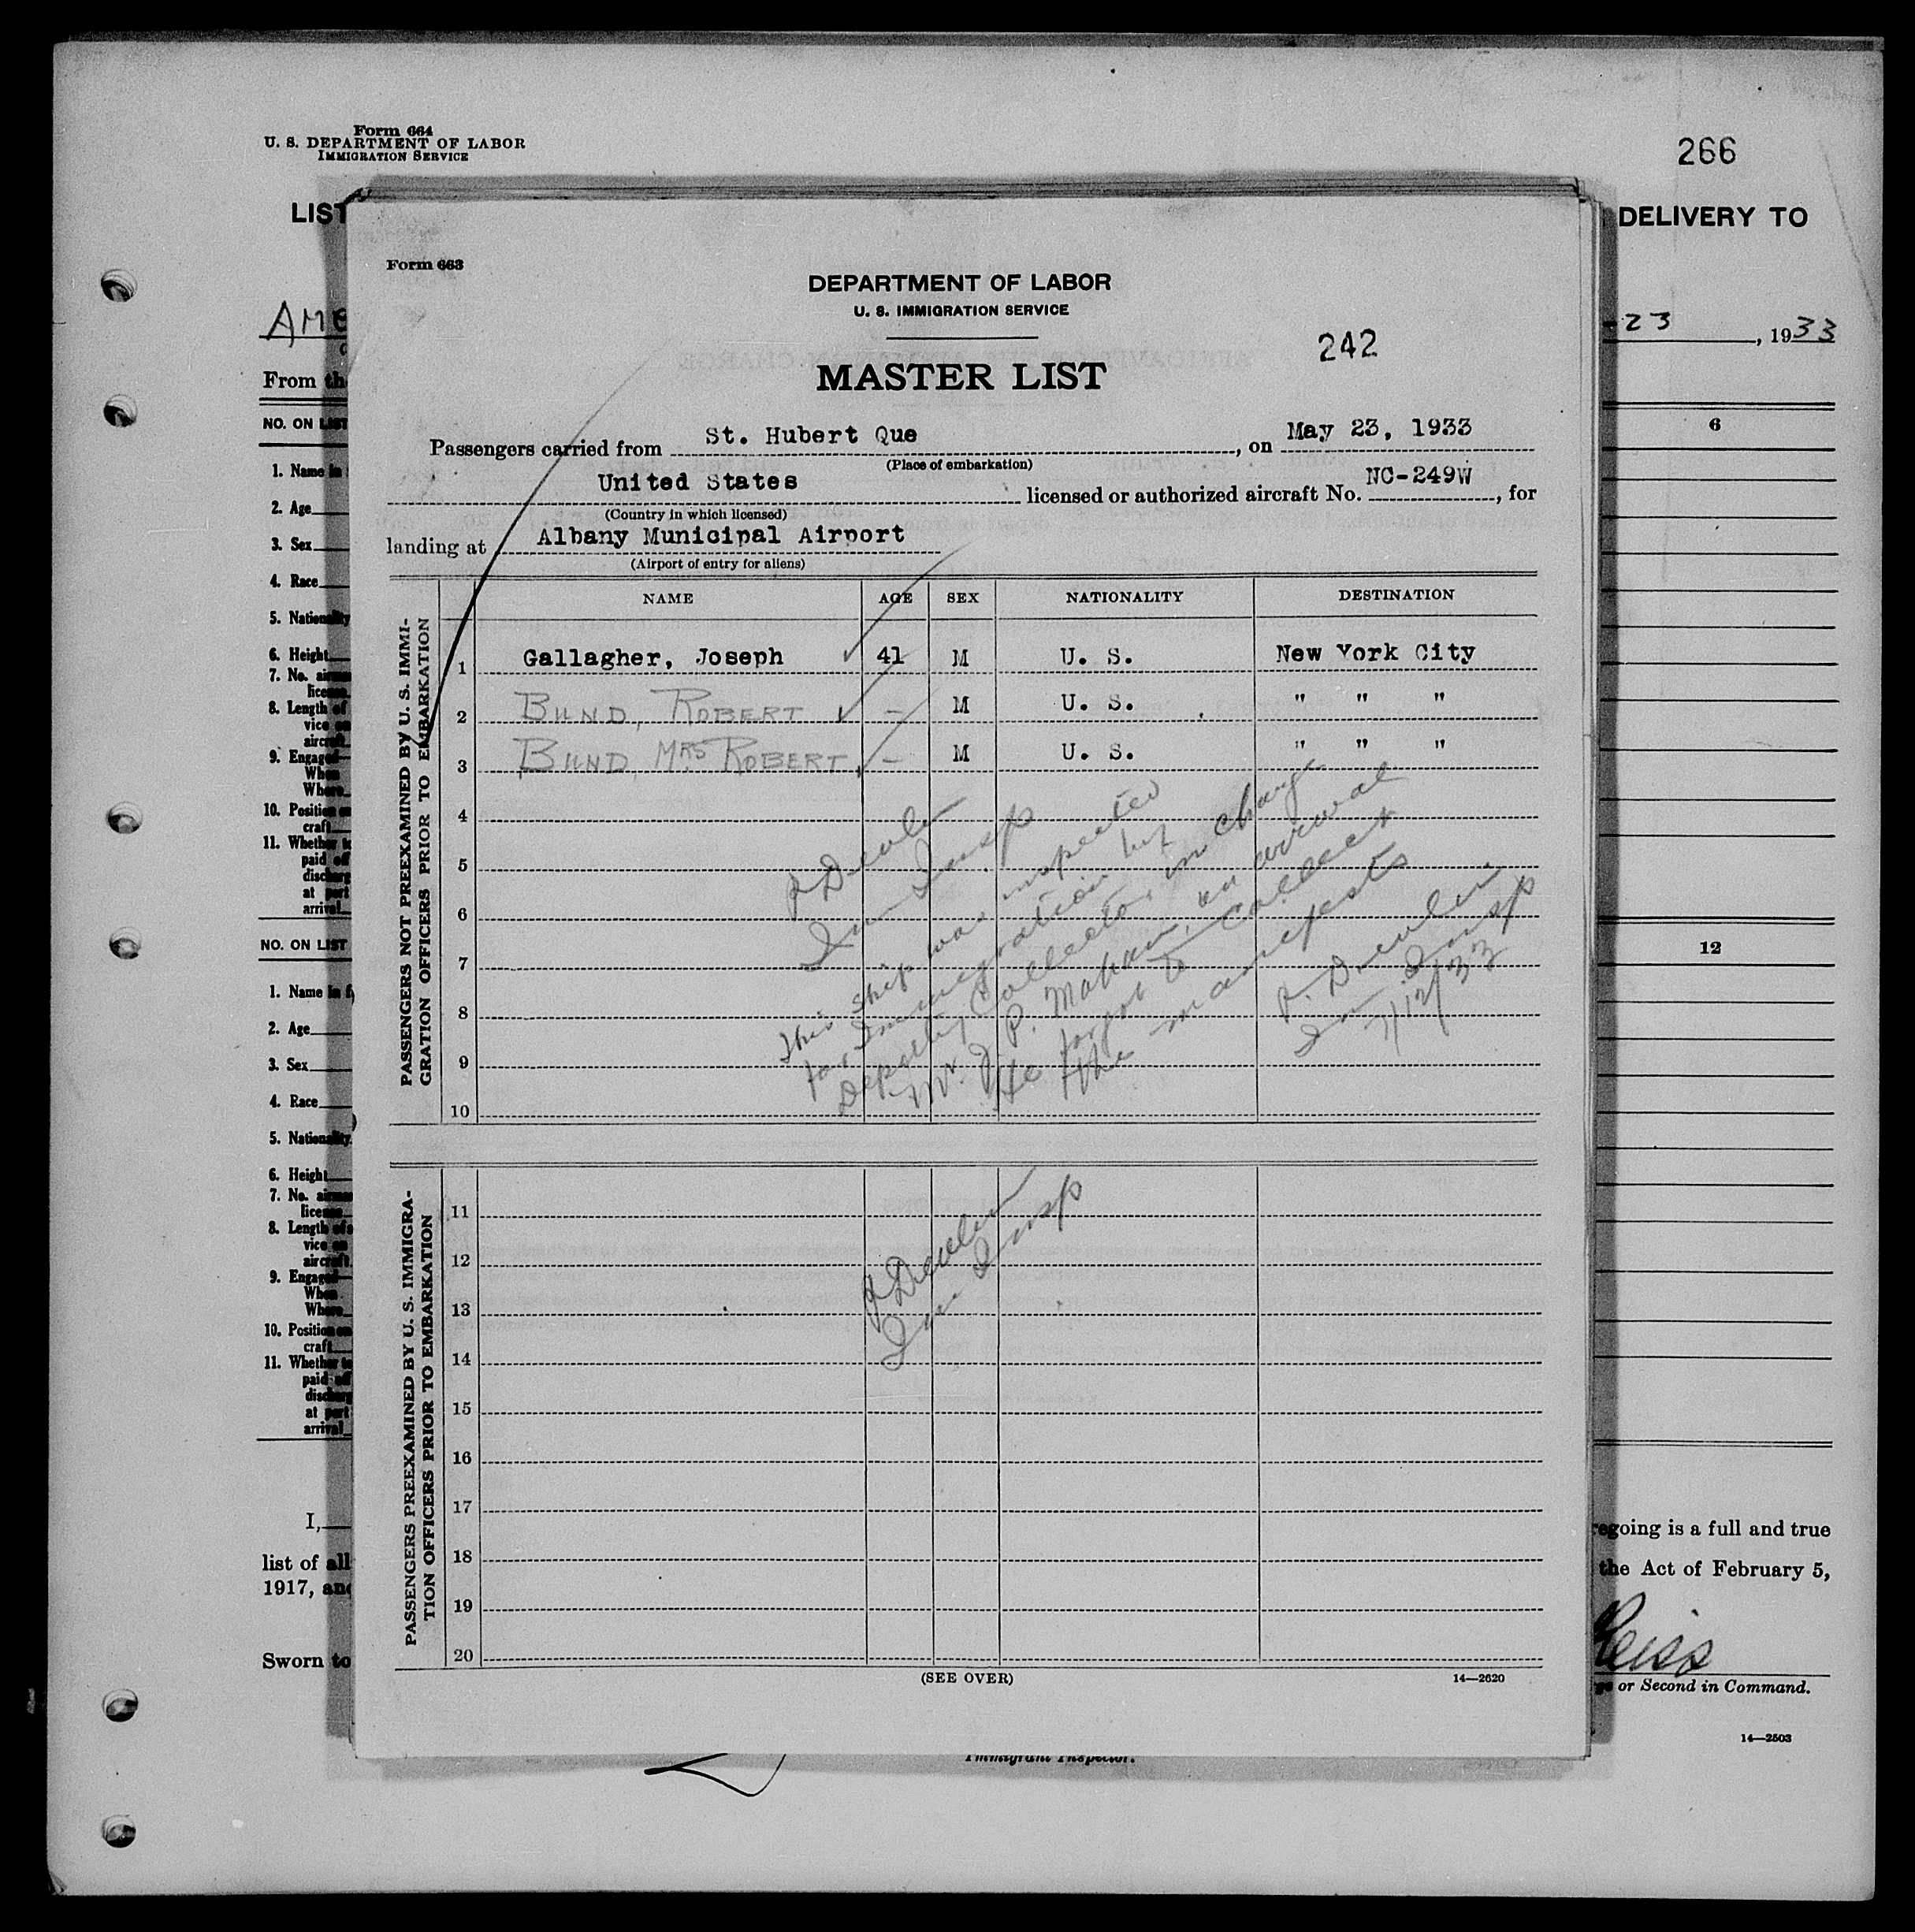 Form 664
U. S. DEPARTMENT OF LABOR
IMMIGRATION SERVICE
266
LIST
DELIVERY TO
AME
23, 1933
From the
NO. ON LIST
6
1. Name in
2. Age
3. Sex
4. Race
5. Nationality
6. Height
7. No.
license
8. Length of
vice on
aircraft
9. Engaged—
When
Where
10. Position on
craft
11. Whether to
paid off
discharg
at port
arrival
NO. ON LIST
12
1. Name in f
2. Age
3. Sex
4. Race
5. Nationality
6. Height
7. No.
license
8. Length of s
vice on
aircraft
9. Engaged—
When
Where
10. Position on
craft
11. Whether to
paid off
discharg
at port
arrival
I,
egoing is a full and true
list of all
the Act of February 5,
1917, and
Sworn to
Reiss
or Second in Command.
14—2503
Immigrant Inspector.
Form 663
DEPARTMENT OF LABOR
U. S. IMMIGRATION SERVICE
242
MASTER LIST
Passengers carried from St. Hubert Que, on May 23, 1933
(Place of embarkation)
United States licensed or authorized aircraft No. NC-249W, for
(Country in which licensed)
landing at Albany Municipal Airport
(Airport of entry for aliens)
NAME AGE SEX NATIONALITY DESTINATION
PASSENGERS NOT PREEXAMINED BY U. S. IMMI-
GRATION OFFICERS PRIOR TO EMBARKATION
1 Gallagher, Joseph 41 M U. S. New York City
2 BUND, ROBERT — M U. S. " " "
3 BUND, MRS ROBERT — M U. S. " " "
4
5
6
7
8
9
10
P Devlin
Imm Insp
This ship was inspected
for Immigration by
Deputy Collector in charge
Mr. J. P. Mahan, on arrival
He forgot to collect
the manifests
P. Devlin
Imm. Insp
7/12/33
PASSENGERS PREEXAMINED BY U. S. IMMIGRA-
TION OFFICERS PRIOR TO EMBARKATION
11
12
13
14
15
16
17
18
19
20
P Devlin
Imm Insp
(SEE OVER)
14—2620